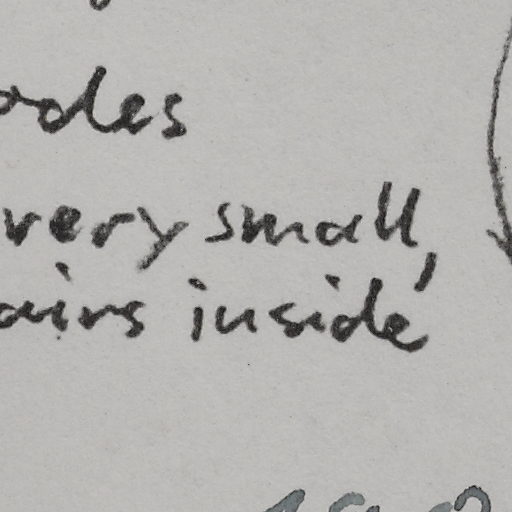 odes
very small,
airs inside